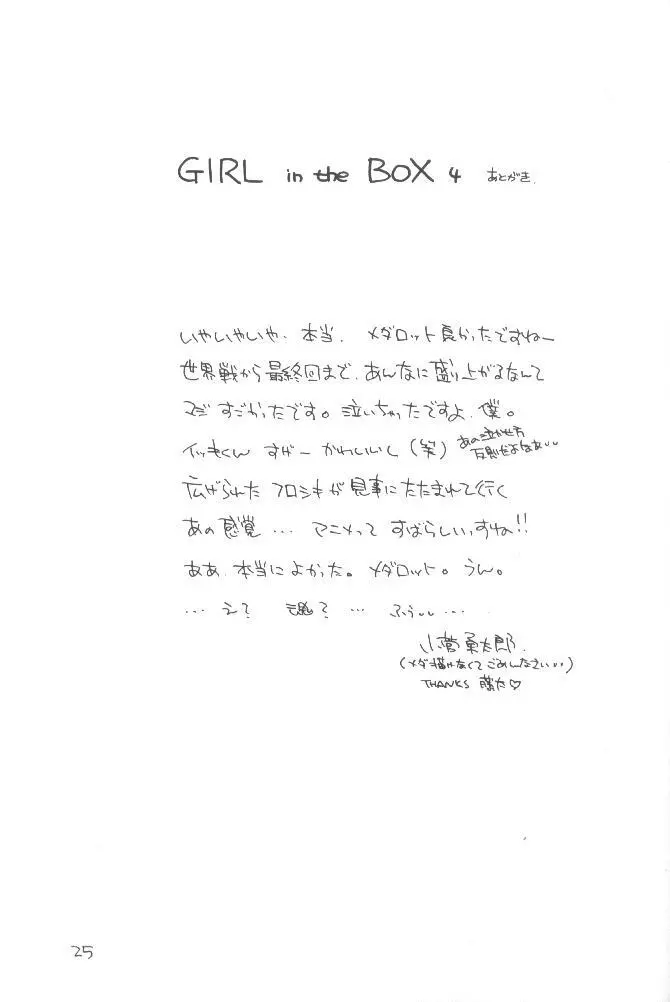 GIRL in the BOX 4 あとがき.
いやいやいや、本当、メダロット良かったですねー
世界戦から最終回まで、あんなに盛り上がるなんて
マジすごかったです。泣いちゃったですよ、僕。
イッキくん すげー かわいいし(笑)
あの泣かせ方
反則だよなぁ・・
広げられたフロシキが見事にたたまれて行く
あの感覚…アニメってすばらしいっすね!!
ああ、本当によかった。メダロット。うん。
…え? 魂? … ふぅ…
小菅勇太郎.
(メダ描けなくてごめんなさい・・)
THANKS 藤た♡
25